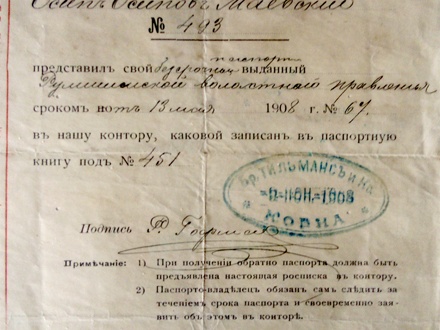 Осипъ Осиповъ Маевскій
№ 493
паспортъ
представилъ свой безсрочный выданный
волостнымъ правленіемъ
срокомъ отъ 13 мая 1908 г. № 67.
въ нашу контору, каковой записанъ въ паспортную
книгу подъ № 451
Бр. ТИЛЬМАНСЪ и Ко.
2-ІЮН.1908
КОВНА
Подпись
Примѣчаніе: 1) При полученіи обратно паспорта должна быть
предъявлена настоящая росписка въ контору.
2) Паспорто-владѣлецъ обязан самъ слѣдить за
теченіемъ срока паспорта и своевременно заявить объ этомъ въ конторѣ.